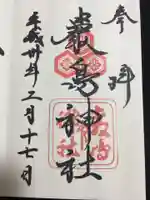 奉拝
嚴島神社
平成卅年二月十七日